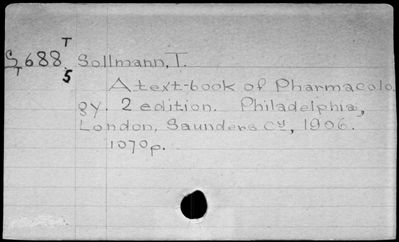 T
S688 Sollmann, T.
T 5
A text-book of Pharmacolo
gy. 2 edition. Philadelphia,
London, Saunders Cy, 1906.
1070p.